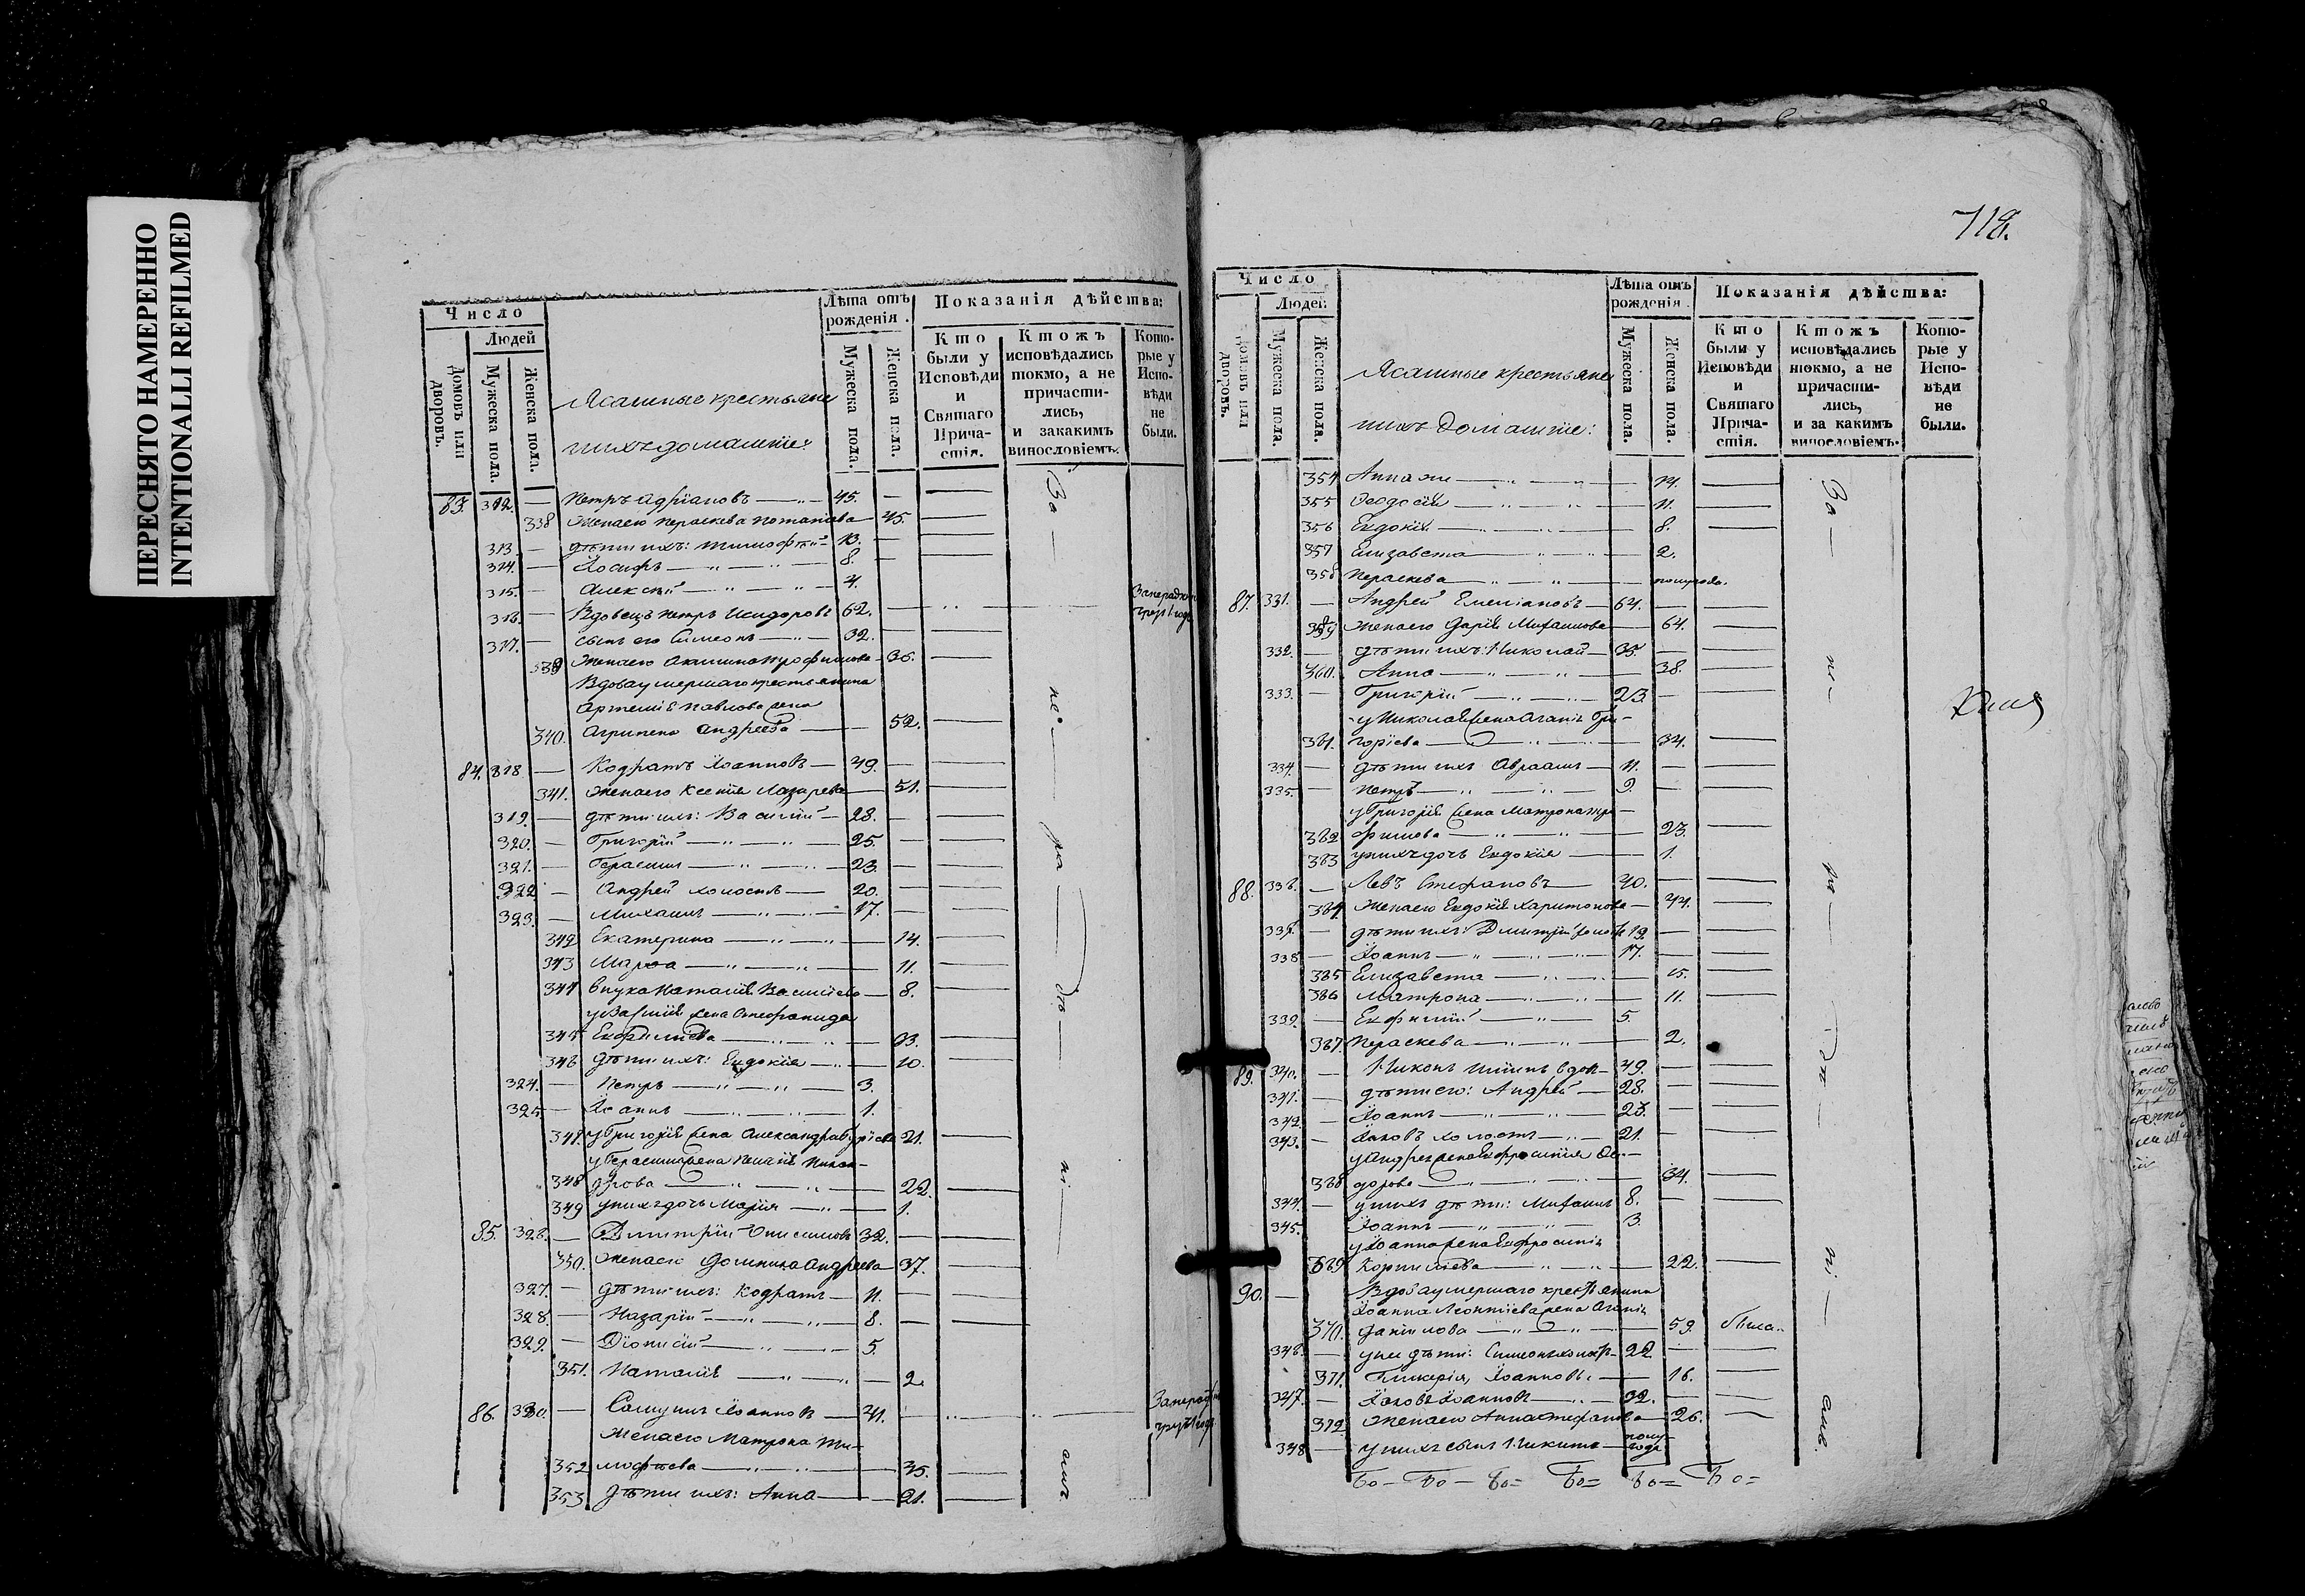 ПЕРЕСНЯТО НАМЕРЕННО
INTENTIONALLI REFILMED
Число
Людей
Домовъ или дворовъ.
Мужеска пола.
Женска пола.
Ясашные крестьяне
и ихъ домашніе:
Лѣта отъ рожденія.
Мужеска пола.
Женска пола.
Показанія дѣйства:
Кто были у Исповѣди и Святаго Причастія.
Ктожъ исповѣдались токмо, а не причастились, и закакимъ винословіемъ.
Которые у Исповѣди не были.
83. 312. — Петръ Адріановъ — 45. —
338 Жена его Параскева Потапіева — 45.
313. — дѣти ихъ: Тимофей — 13. —
314. — Іосифъ — 8. —
315. — Алексѣй — 4.
316. — Вдовецъ Петръ Исидоровъ 62. —
317. — сынъ его Симеонъ — 32. —
339 Жена его Акилина Трофимова — 36.
Вдова умершаго крестьянина
Артемія Павлова жена
340. Агрипена Андреева — 52.
84. 318. — Кодратъ Іоанновъ — 49. —
341. Жена его Ксенія Лазарева — 51.
319. — дѣти ихъ: Василій — 28. —
320. — Григорій — 25. —
321. — Герасимъ — 23. —
322 — Андрей холостъ — 20. —
323. — Михаилъ — 17. —
342 Екатерина — 14.
343 Марѳа — 11.
344 внука Наталія Василіева — 8.
у Василія жена Стефанида
345 Евфиміева — 33.
346 дѣти ихъ: Евдокія — 10.
324. — Петръ — 3.
325. — Іоаннъ — 1.
347. у Григорія жена Александра 21.
у Герасима жена Пелагія
348 — 22.
349 у нихъ дочь Марія — 1.
85. 326. — Димитрій Онисимовъ 32. —
350. Жена его Домника Андреева 37.
327. — дѣти ихъ: Кодратъ — 11. —
328. — Назарій — 8. —
329. — Діонисій — 5.
351. Наталія — 2.
86. 330. — Самуилъ Іоанновъ — 41. —
Жена его Матрона Ти-
352 мофеева — 45.
353 дѣти ихъ: Анна — 21.
718.
Число
Людей
Домовъ или дворовъ.
Мужеска пола.
Женска пола.
Ясашные крестьяне
и ихъ домашніе:
Лѣта отъ рожденія.
Мужеска пола.
Женска пола.
Показанія дѣйства:
Кто были у Исповѣди и Святаго Причастія.
Ктожъ исповѣдались токмо, а не причастились, и за какимъ винословіемъ.
Которые у Исповѣди не были.
354 Анна же — 14.
355 Ѳеодосія — 11.
356 Евдокія — 8.
357 Елизавета — 2.
358 Параскева — полугода.
87. 331. — Андрей Емеліановъ — 64. —
359 Жена его Дарія Михаилова — 64.
332. — дѣти ихъ: Николай — 35. —
360. Анна — 38.
333. — Григорій — 23. —
у Николая жена Агапія Гри-
361. горіева — 34.
334. — дѣти ихъ Авраамъ — 11. —
335. — Петръ — 9. —
у Григорія жена Матрона Тро-
362 фимова — 23.
363 у нихъ дочь Евдокія — 1.
88. 336. — Левъ Стефановъ — 40. —
364 Жена его Евдокія Харитонова — 44.
337. — дѣти ихъ: Димитрій холостъ 19. —
338 — Іоаннъ — 17. —
365 Елизавета — 15.
366 Матрона — 11.
339. — Евфимій — 5.
367. Параскева — 2.
89. 340. — Никонъ Иліинъ вдов — 49. —
341. — дѣти его: Андрей — 28. —
342. — Іоаннъ — 23. —
343. — Іаковъ холостъ — 21. —
у Андрея жена Евфросинія Ѳе-
368 дорова — 34.
344. — у нихъ дѣти: Михаилъ 8. —
345. — Іоаннъ — 3.
у Іоанна жена Евфросинія
369 Корниліева — 22.
90. — Вдова умершаго крестьянина
Іоанна Леонтіева жена Агапія
370. Даніилова — 59. была.
346. — у ней дѣти: Симеонъ холостъ — 22. —
371. Гликерія Іоаннова — 16.
347. — Іаковъ Іоанновъ — 32. —
372. Жена его Анна Стефанова — 26.
348 — у нихъ сынъ Никита — полугода